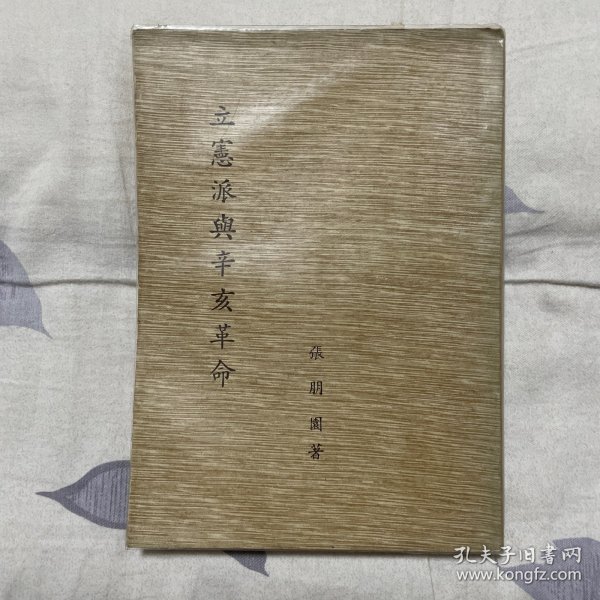 立憲派與辛亥革命
張朋園著
孔夫子旧書网
www.kongfz.com